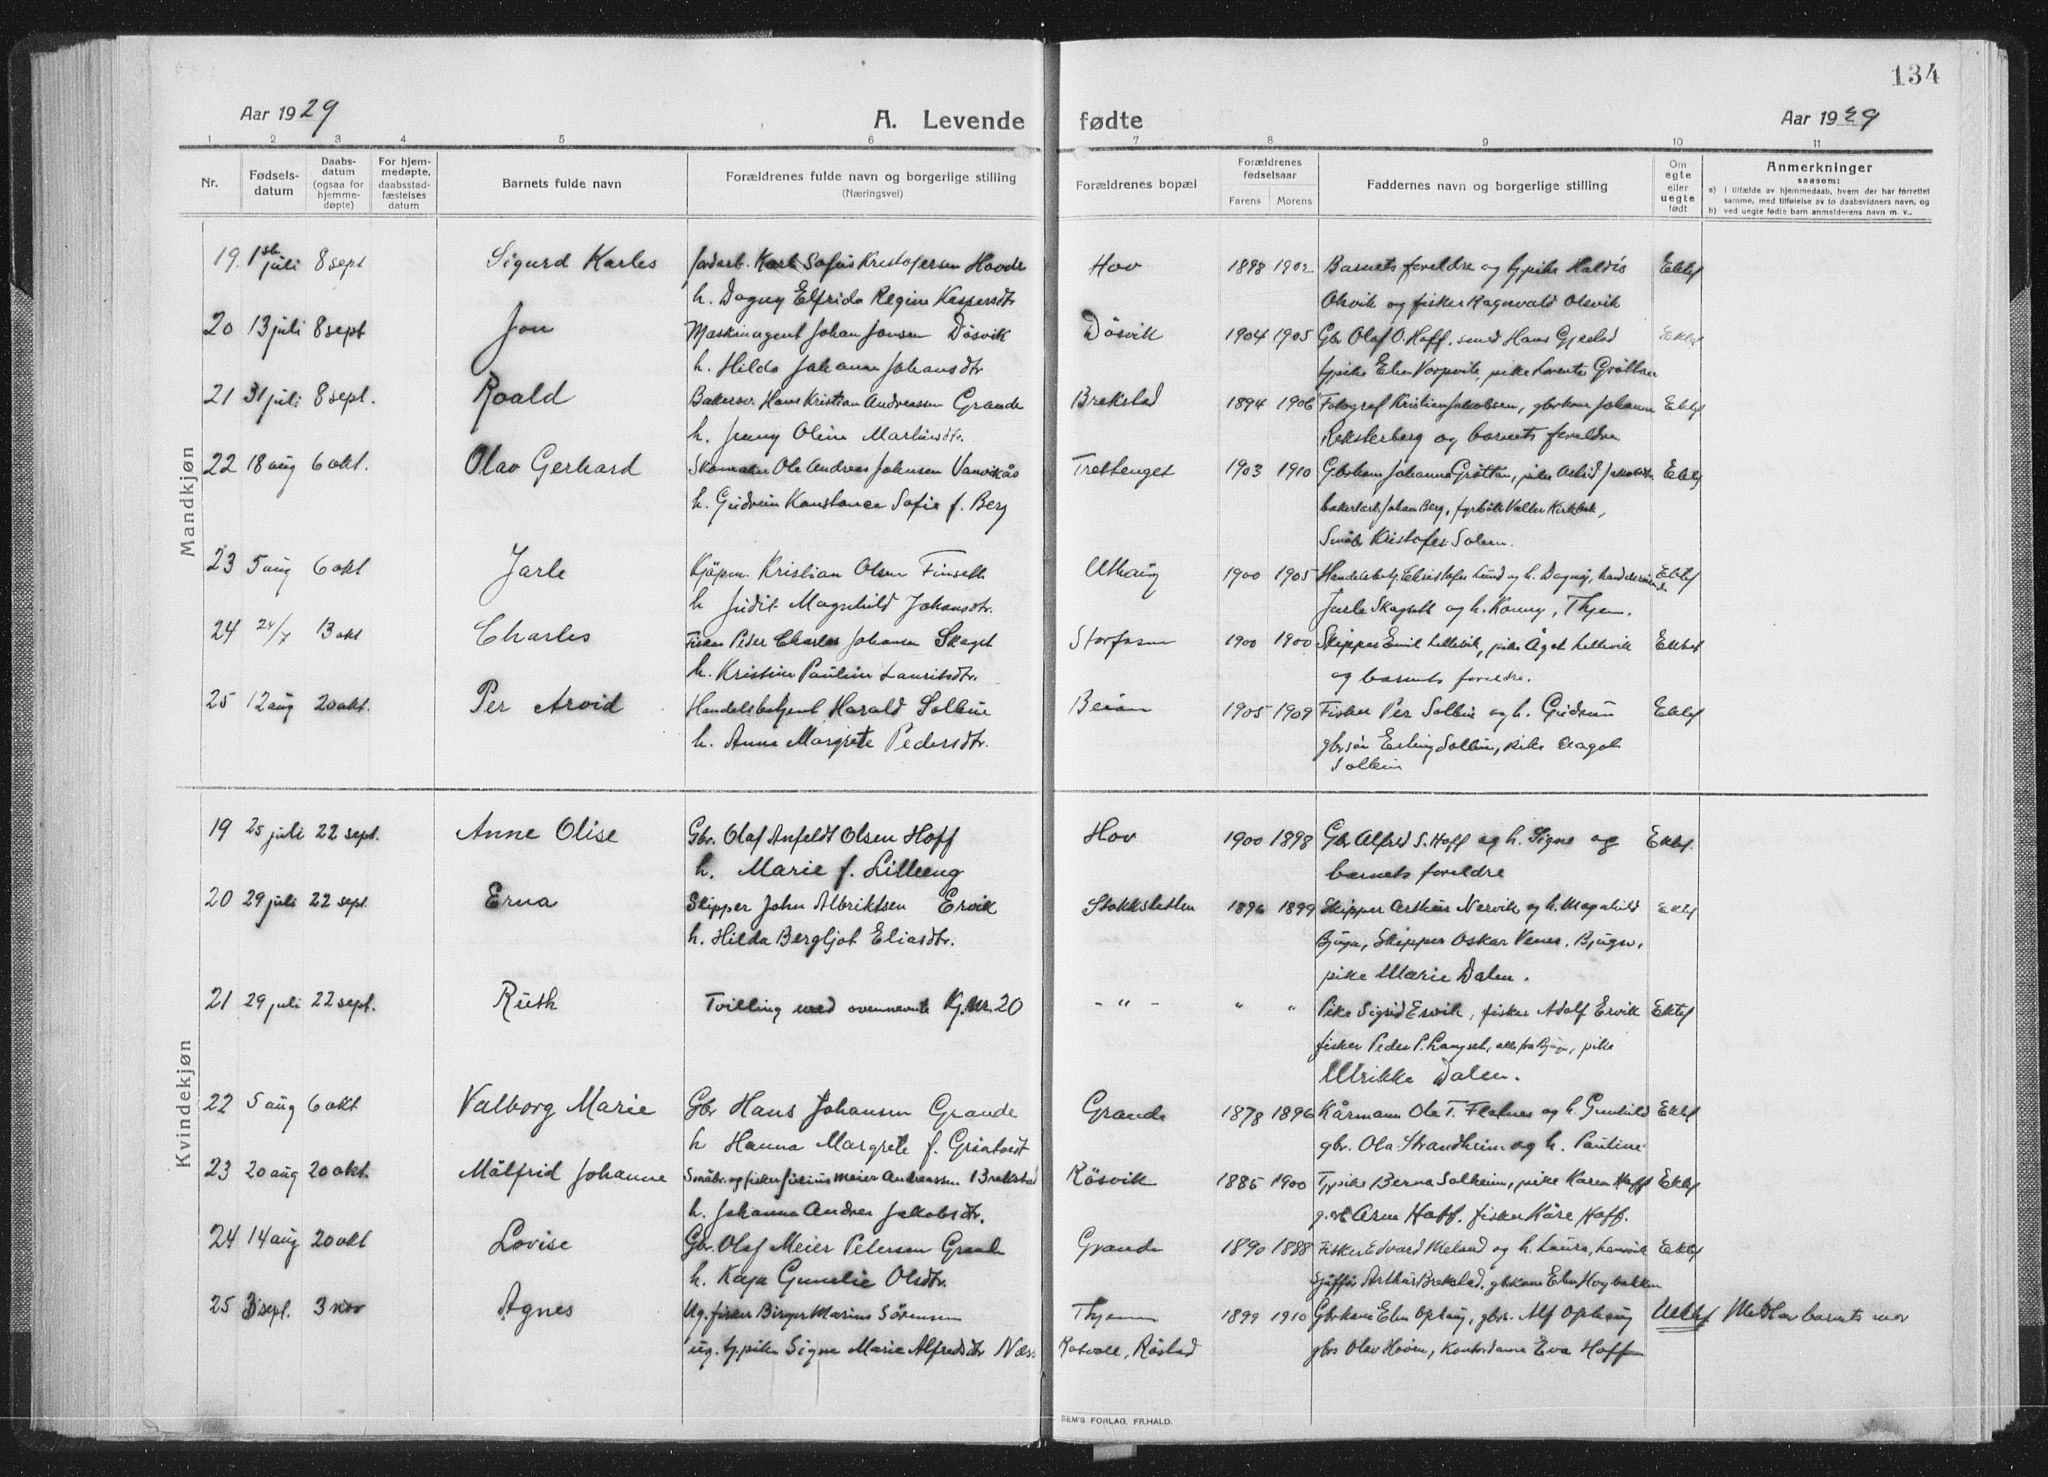 134
Aar 1929
A. Levende fødte
Aar 1929
1 2 3 4 5 6 7 8 9 10 11
Nr.
Fødsels-
datum
Daabs-
datum
(ogsaa for
hjemme-
døpte)
For hjem-
medøpte,
daabsstad-
fæstelses
datum
Barnets fulde navn
Forældrenes fulde navn og borgerlige stilling
(Næringsvei)
Forældrenes bopæl
Forældrenes
fødselsaar
Farens Morens
Faddernes navn og borgerlige stilling
Om
egte
eller
uegte
født
Anmerkninger
saasom:
a) I tilfælde av hjemmedaab, hvem der har forrettet
samme, med tilføielse av to daabsvidners navn, og
b) ved uegte fødte barn anmelderens navn m. v..
Mandkjøn
19. 1ste juli 8 sept Sigurd Karles Karl Sofus Kristofersen Hovde Hov 1898 1902 Barnets foreldre og tjpike Haldis Ektef
h. Dagny Elfrida Regine Kaspersdtr Olsvik og fisker Ragnvald Olsvik
20 13 juli 8 sept Jon Maskinagent Johan Jonsen Døsvik Døsvik 1904 1905 Gbr Olaf O. Hoff, smed Hans Ektef
h. Hilda Johanna Johansdtr
21 31 juli 8 sept. Roald Bakersv. Hans Kristian Andreassen Grande Brekstad 1894 1906 Fotograf Kristian Jakobsen, gbrkone Johanna Ektef
h. Jenny Oline Martinsdtr. Reksterberg og barnets foreldre
22 18 aug 6 okt. Olav Gerhard Skomaker Ole Andreas Johnsen Vanvikås Trettenget 1903 1910 Gbrkone Johanna Grøttan, pike Ektef
h. Gudrun Konstance Sofie f. Berg Johan Berg, fyrbøter
Småbr Kristofer Solem.
23 5 aug 6 okt Jarle Kjøpm. Kristian Olsen Finseth Uthaug 1900 1905 Kristofer Lund og h. Dagny, Ektef
h Judit Magnhild Johansdtr. Jarle Skagseth og h. Konny,
24 24/7 13 okt Charles Fisker Peder Charles Johansen Skaget Storfosna 1900 1900 Skipper Emil Lillevik, pike Ågot Lillevik Ektef
h. Kristine Pauline Lauritsdtr. og barnets foreldre.
25 12 aug 20 okt. Per Arvid Handelsbetjent Harald Solbue Beian 1905 1909 Fisker Per Solbue og h. Gudrun Ektef
h. Anna Margrete Pedersdtr. gbrsøn Erling Solbue, pike Aagot
Kvindekjøn
19 25 juli 22 sept. Anne Olise Gbr. Olaf Anfeldt Olsen Hoff Hov 1900 1898 Gbr Alfred S. Hoff og h. Signe og Ektef.
h. Marie f. Lilleeng barnets foreldre
20 29 juli 22 sept. Erna Skipper John Albriktsen Ervik Stokksletten 1896 1899 Skipper Arthur Nervik og h. Magnhild Ektef
h. Hilda Bergljot Eliasdtr. Bjugn, Skipper Oskar Venes, Bjugn,
pike Marie Dalen.
21 29 juli 22 sept. Ruth Tvilling med ovennevnte Kj. nr. 20 - " - " " Pike Sigrid Ervik, fisker Adolf Ervik Ektef
fisker Peder P. Langset, alle fra Bjugn, pike
Ulrikke Dalen.
22 5 aug 6 okt Valborg Marie Gbr Hans Johansen Grande Grande 1878 1896 Kårmann Ole T. Flatnes og h. Gunhild Ektef
h Hanna Margrete f. gbr. Ola Strandheim og h. Pauline
23 20 aug 20 okt. Målfrid Johanne Småbr. og fisker Julius Meier Andreassen Brekstad Røsvik 1885 1900 Tjpike Berna Solheim, pike Karen Hoff Ektef
h. Johanna Andrea Jakobsdtr. Arne Hoff, fisker Kåre Hoff.
24 14 aug 20 okt Lovise Gbr. Olaf Meier Petersen Grande Grande 1890 1888 Fisker Edvard Melsad og h. Laura, Ektef
h. Kaja Gunelie Olsdtr. Sjåffør Arthur Brekstad, gbrkone Elen Høybakken
25 3 sept. 3 nov Agnes Ug. fisker Birger Marius Sørensen 1899 1910 Gbrkone Elen Ophaug, gbrs. Alf Ophaug Uektef Meldt av barnets mor
ug. tj.pike Signe Marie Alfredsdtr Næss Røstad gbrs Olav Hoven, Kontordame Eva Hoff
SEM'S FORLAG, FR.HALD.